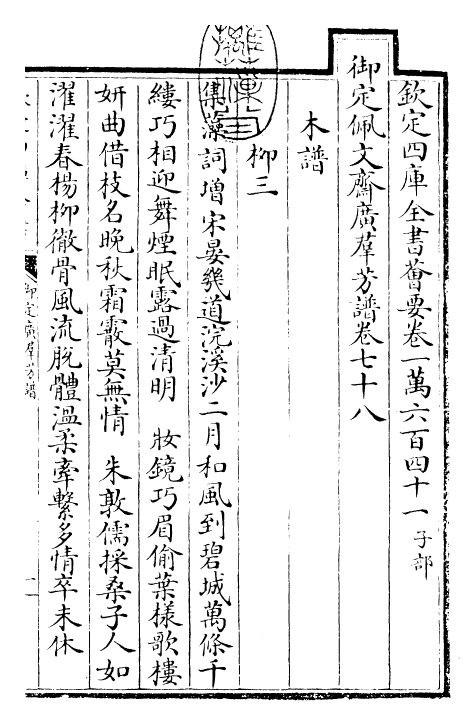 欽定四庫全書薈要卷一萬六百四十一 子部
御定佩文齋廣羣芳譜卷七十八
木譜
柳三
集藻詞增宋晏幾道浣溪沙二月和風到碧城萬條千
縷巧相迎舞煙眠露過清明 妝鏡巧眉偷葉樣歌樓
妍曲借枝名晚秋霜霰莫無情 朱敦儒採桑子人如
濯濯春楊柳徹骨風流脱體溫柔牽繫多情卒未休
御定廣羣芳譜
一